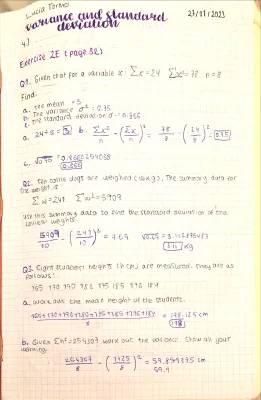 Lucia Tormo
variance and standard deviation
27/01/2023
4)
Exercise 2E (page 32)
Q1. Given that for a variable x: Σx = 24 Σx² = 78 n = 8
Find:
a. the mean = 3
b. The variance σ² = 0.75
c. the standard deviation σ = 0.866
a. 24÷8 = 3 b. Σx²/n - (Σx/n)² = 78/8 - (24/8)² = 0.75
c.
0.866
Q2. Ten collie dogs are weighed (w kg). The summary data for
the weight is
Σw = 241 Σw² = 5905
use this summary data to find the standard deviation of the
collies' weights.
kg
Q3. Eight students' heights (h cm) are measured. They are as
follows:
165 170 190 180 175 185 176 184
a. Work out the mean height of the students.
= 178.125 cm
178
b. Given Σh² = 254307 work out the variance. Show all your
working.
254307/8 - (1425/8)² = 59.859375 cm
59.9